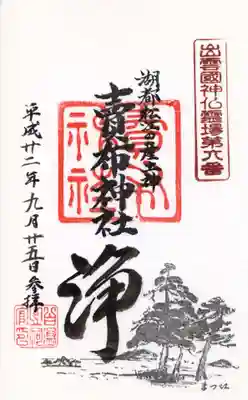 出雲國神仏霊場第六番
湖都松江の産土神
賣布神社
浄
平成廿二年九月廿五日参拝
賣布
神社
まつ江